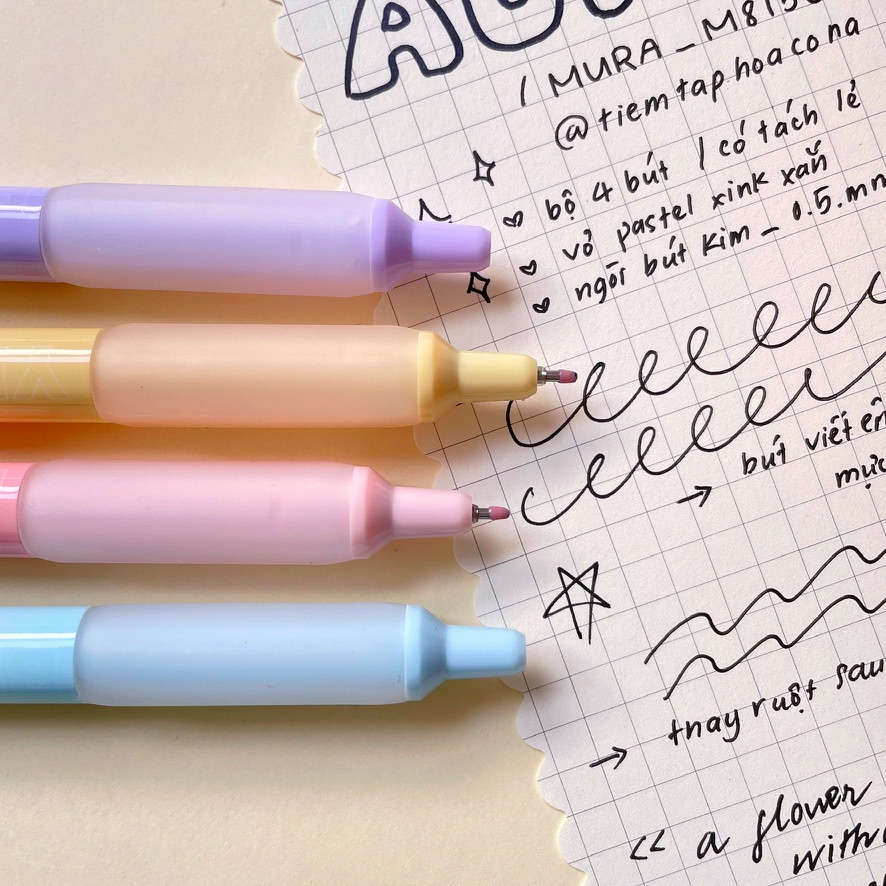 / MURA _ M815
@tiemtaphoacona
bộ 4 bút / có tách lẻ
vỏ pastel xink xắn
ngòi bút kim _ 0.5.mm
→ bút viết êm
mực
→ thay ruột sau
<< a flower